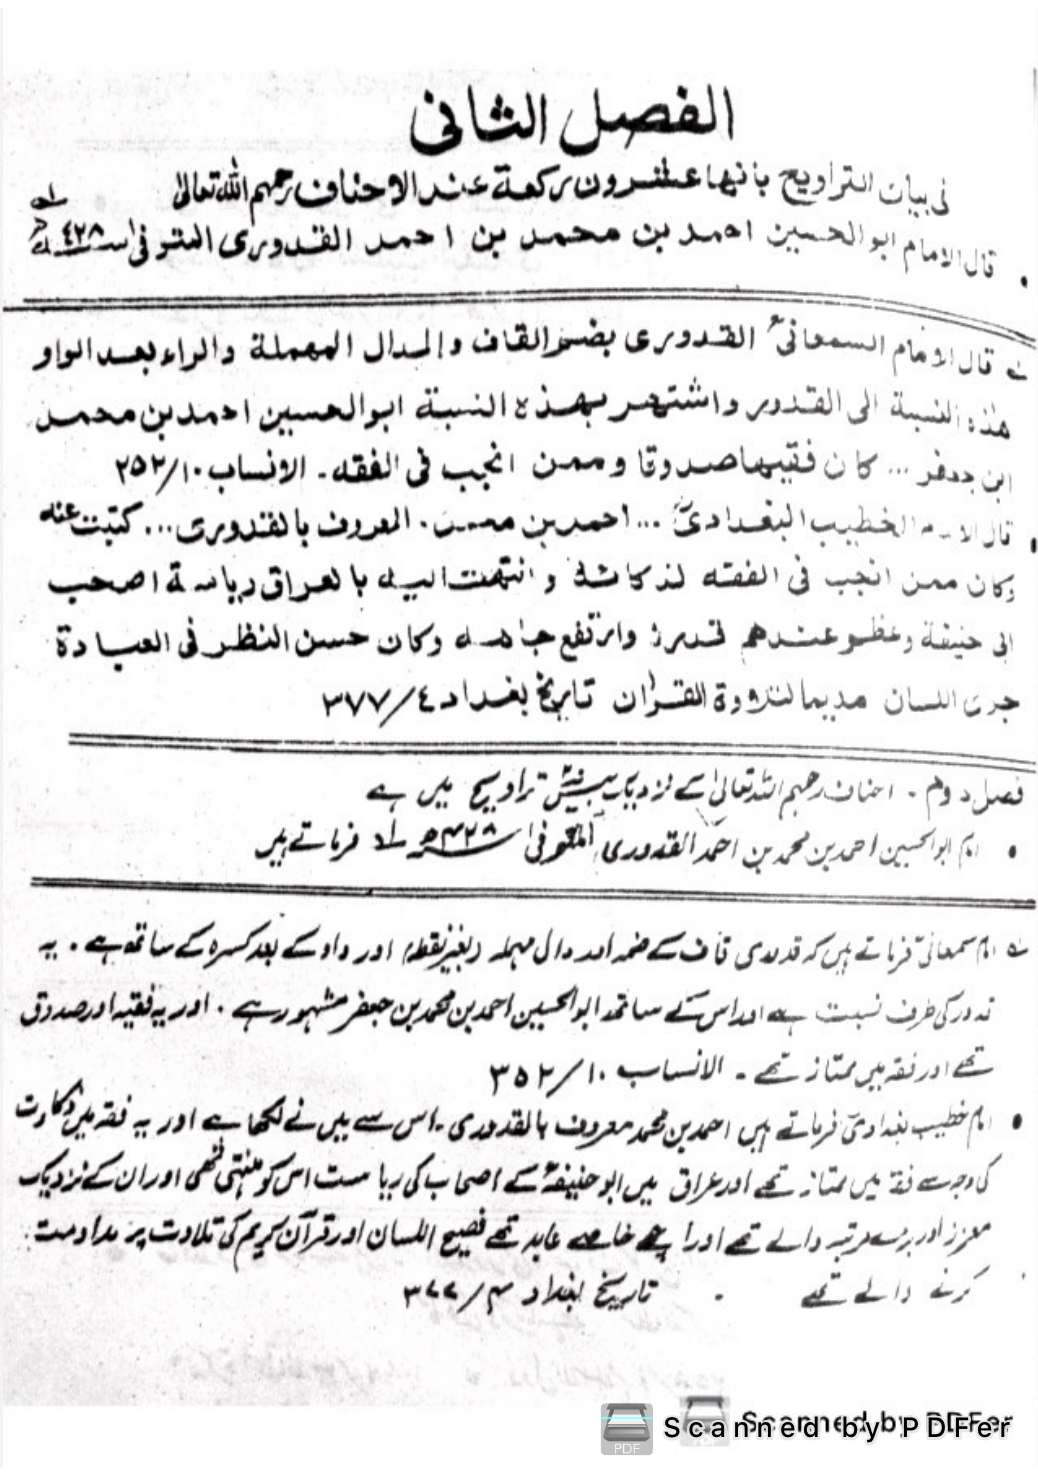 الفصل الثانی
فی بیان التراویح بانها عشرون رکعة عند الاحناف رحمهم الله تعالیٰ
• قال الامام ابوالحسین احمد بن محمد بن احمد القدوری المتوفی ٤٢٨ھ
لے قال الامام السمعانی القدوری بضم القاف والدال المهملة والراء بعد الواو
هذه النسبة الی القدور واشتهر بهذه النسبة ابوالحسین احمد بن محمد
ابن جعفر ... کان فقیها صدوقا وممن انجب فی الفقه ـ الانساب ١٠/٣٥٢
• قال الامام الخطیب البغدادیؒ ... احمد بن محمد . المعروف بالقدوری ... کتبت عنه
وکان ممن انجب فی الفقه لذکائه وانتهت الیه بالعراق ریاسة اصحب
ابی حنیفة وعظم عندهم قدره وارتفع جاهه وکان حسن النظر فی العبادة
جری اللسان مدیما لتلاوة القرآن تاریخ بغداد ٤/٣٧٧
فصل دوم ۔ احناف رحمہم اللہ تعالیٰ کے نزدیک بیس تراویح میں ہے
• امام ابوالحسین احمد بن محمد بن احمد القدوری المتوفی ۴۲۸ھ لے فرماتے ہیں
لے امام سمعانی فرماتے ہیں کہ قدوری قاف کے ضمہ اور دال مہملہ (بغیر نقطہ) اور واو کے بعد کسرہ کے ساتھ ہے ۔ یہ
قدور کی طرف نسبت ہے اور اس کے ساتھ ابوالحسین احمد بن محمد بن جعفر مشہور ہے ۔ اور یہ فقیہ اور صدوق
تھے اور فقہ میں ممتاز تھے ۔ الانساب ۱۰/۳۵۲
• امام خطیب بغدادیؒ فرماتے ہیں احمد بن محمد معروف بالقدوری ۔ اس سے میں نے لکھا ہے اور یہ فقہ میں ذکاوت
کی وجہ سے فقہ میں ممتاز تھے اور عراق میں ابوحنیفہؒ کے اصحاب کی ریاست اس کو منتہی تھی اور ان کے نزدیک
معزز اور بڑے مرتبہ والے تھے اور اچھے خاصے عابد تھے فصیح اللسان اور قرآن کریم کی تلاوت پر مداومت
کرنے والے تھے ۔ تاریخ بغداد ۴/۳۷۷
Scanned by PDFer